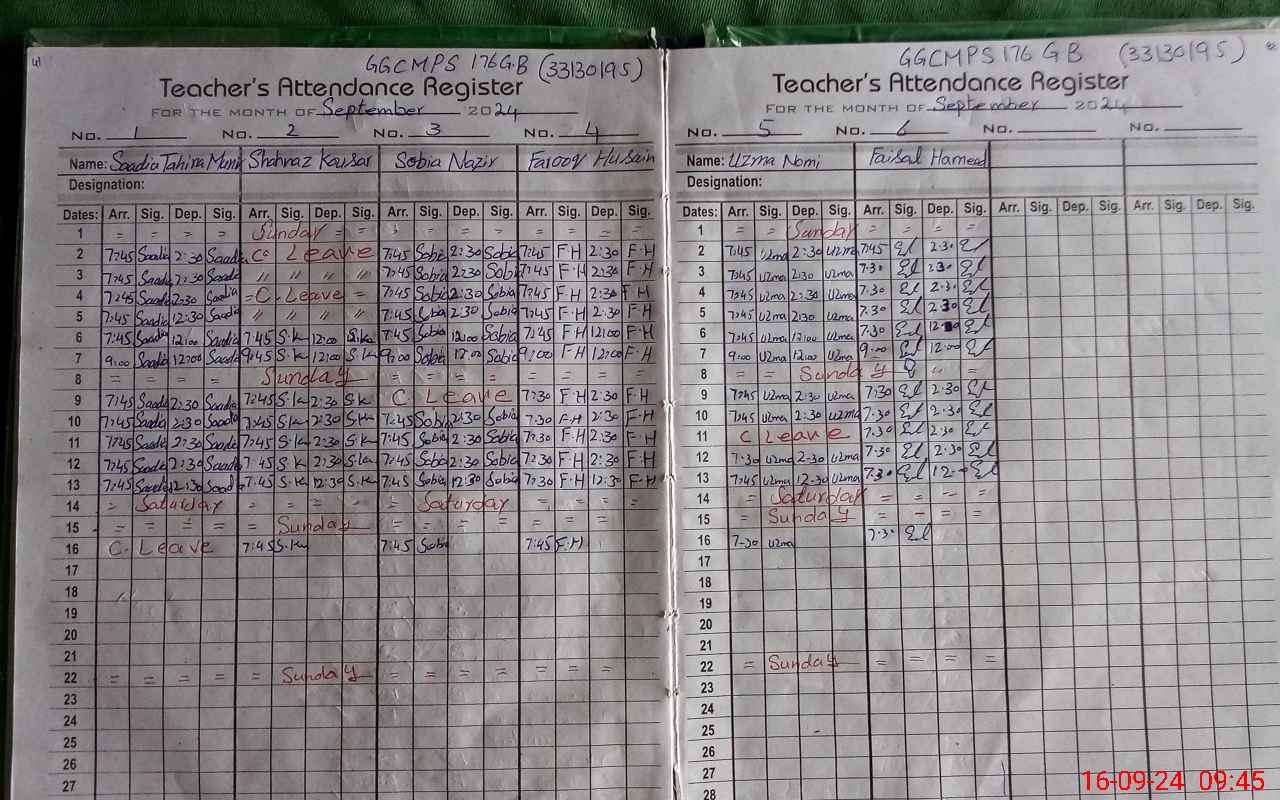 41
GGCMPS 176 G.B (33130195)
Teacher's Attendance Register
FOR THE MONTH OF September 2024
No. 1 No. 2 No. 3 No. 4
Name: Saadia Tahira Munir Shahnaz Kausar Sobia Nazir Farooq Husain
Designation:
Dates: Arr. Sig. Dep. Sig. Arr. Sig. Dep. Sig. Arr. Sig. Dep. Sig. Arr. Sig. Dep. Sig.
1 = = = = Sunday = = = = = = = = =
2 7:45 Saadia 2:30 Saadia C. Leave 7:45 Sobia 2:30 Sobia 7:45 F.H 2:30 F.H
3 7:45 Saadia 2:30 Saadia " " " " 7:45 Sobia 2:30 Sobia 7:45 F.H 2:30 F.H
4 7:45 Saadia 2:30 Saadia = C. Leave = 7:45 Sobia 2:30 Sobia 7:45 F.H 2:30 F H
5 7:45 Saadia 12:30 Saadia " " " " 7:45 Sobia 2:30 Sobia 7:45 F.H 2:30 F.H
6 7:45 Saadia 12:00 Saadia 7:45 S.K 12:00 S.K 7:45 Sobia 12:00 Sobia 7:45 F.H 12:00 F.H
7 9:00 Saadia 12:00 Saadia 9:45 S.K 12:00 S.K 9:00 Sobia 12:00 Sobia 9:00 F.H 12:00 F.H
8 = = = = Sunday = = = = = = = =
9 7:45 Saadia 2:30 Saadia 7:45 S.K 2:30 S.K C. Leave 7:30 F.H 2:30 F.H
10 7:45 Saadia 2:30 Saadia 7:45 S.K 2:30 S.K 7:45 Sobia 2:30 Sobia 7:30 F.H 2:30 F.H
11 7:45 Saadia 2:30 Saadia 7:45 S.K 2:30 S.K 7:45 Sobia 2:30 Sobia 7:30 F.H 2:30 F.H
12 7:45 Saadia 2:30 Saadia 7:45 S.K 2:30 S.K 7:45 Sobia 2:30 Sobia 7:30 F.H 2:30 F.H
13 7:45 Saadia 12:30 Saadia 7:45 S.K 12:30 S.K 7:45 Sobia 12:30 Sobia 7:30 F.H 12:30 F.H
14 = Saturday = = = = = Saturday = = = =
15 = = = = = Sunday = = = = = = =
16 C. Leave 7:45 S.K 7:45 Sobia 7:45 F.H
17
18
19
20
21
22 = = = = = Sunday = = = = = = = =
23
24
25
26
27
42
GGCMPS 176 G B (33130195)
Teacher's Attendance Register
FOR THE MONTH OF September 2024
No. 5 No. 6 No. No.
Name: Uzma Nomi Faisal Hameed
Designation:
Dates: Arr. Sig. Dep. Sig. Arr. Sig. Dep. Sig. Arr. Sig. Dep. Sig. Arr. Sig. Dep. Sig.
1 = = Sunday = = = =
2 7:45 Uzma 2:30 Uzma 7:45 2:30
3 7:45 Uzma 2:30 Uzma 7:30 2:30
4 7:45 Uzma 2:30 Uzma 7:30 2:30
5 7:45 Uzma 2:30 Uzma 7:30 2:30
6 7:45 Uzma 12:00 Uzma 7:30
7 9:00 Uzma 12:00 Uzma 9:00 12:00
8 = = Sunday " =
9 7:45 Uzma 2:30 Uzma 7:30 2:30
10 7:45 Uzma 2:30 Uzma 7:30 2:30
11 C Leave 7:30 2:30
12 7:30 Uzma 2:30 Uzma 7:30 2:30
13 7:45 Uzma 12:30 Uzma 7:30
14 = Saturday = = = =
15 = Sunday = - = =
16 7-30 Uzma 7:30
17
18
19
20
21
22 = Sunday = = = =
23
24
25
26
27
28
16-09-24 09:45